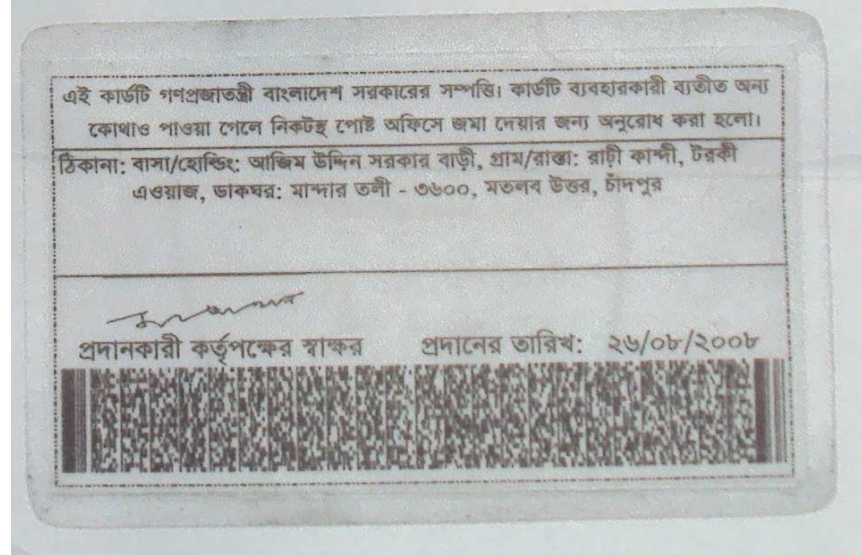 এই কার্ডটি গণপ্রজাতন্ত্রী বাংলাদেশ সরকারের সম্পত্তি। কার্ডটি ব্যবহারকারী ব্যতীত অন্য
কোথাও পাওয়া গেলে নিকটস্থ পোষ্ট অফিসে জমা দেয়ার জন্য অনুরোধ করা হলো।
ঠিকানা: বাসা/হোল্ডিং: আজিম উদ্দিন সরকার বাড়ী, গ্রাম/রাস্তা: রাঢ়ী কান্দী, টরকী
এওয়াজ, ডাকঘর: মান্দার তলী - ৩৬০০, মতলব উত্তর, চাঁদপুর
প্রদানকারী কর্তৃপক্ষের স্বাক্ষর প্রদানের তারিখ: ২৬/০৮/২০০৮